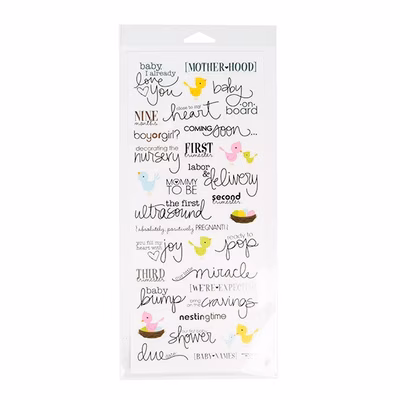 baby,
I already
love
you
[MOTHER♥HOOD]
baby
on
board
close to my
heart
NINE
months
boyorgirl?
COMING
soon...
decorating the
nursery
FIRST
trimester
labor
&
delivery
MOMMY
TO BE
the first
ultrasound
second
trimester
{absolutely, positively, PREGNANT!}
you fill my
heart with
joy
ready to
pop
THIRD
trimester
miracle
baby
bump
[WE'RE•EXPECTING]
bring on the
cravings
nestingtime
shower
due
[BABY•NAMES]